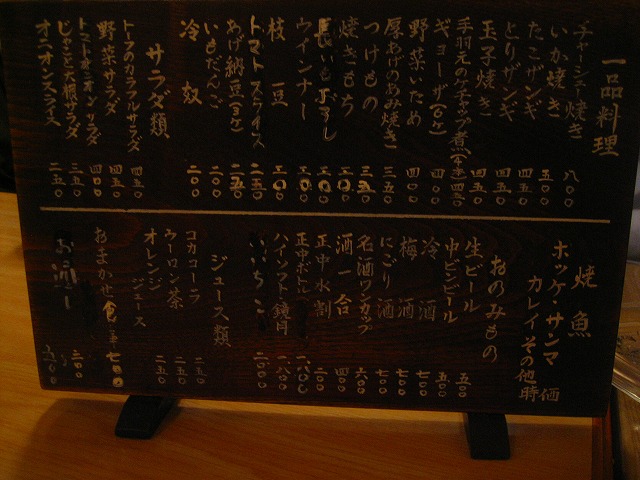 一品料理
チャーシャー焼き 八〇〇
いか焼き 五〇〇
たこザンギ 四五〇
とりザンギ 四五〇
玉子焼き 四五〇
手羽元のケチャップ煮
ギョーザ 四〇〇
野菜いため 四〇〇
厚あげのあみ焼き 三五〇
つけもの 三五〇
焼きもち 三〇〇
ウインナー 三〇〇
枝豆 三〇〇
トマトスライス 二五〇
あげ納豆 二五〇
いもだんご 二〇〇
冷奴 二〇〇
サラダ類
トーフのカラフルサラダ 四五〇
野菜サラダ 四五〇
トマトオニオンサラダ 四〇〇
じゃこと大根サラダ 三五〇
オニオンスライス 二五〇
焼魚
ホッケ・サンマ
カレイその他 時価
おのみもの
生ビール 五〇〇
中ビンビール 五〇〇
冷酒 七〇〇
梅酒
にごり酒 七〇〇
名酒ワンカップ 六〇〇
酒一合 四〇〇
正中水割 二〇〇
正中ボトル 一八〇〇
ハイソフト・鏡月 一八〇〇
いいちこ 二〇〇〇
ジュース類
コカコーラ 二五〇
ウーロン茶 二五〇
オレンジジュース 二五〇
おまかせ 七〇〇